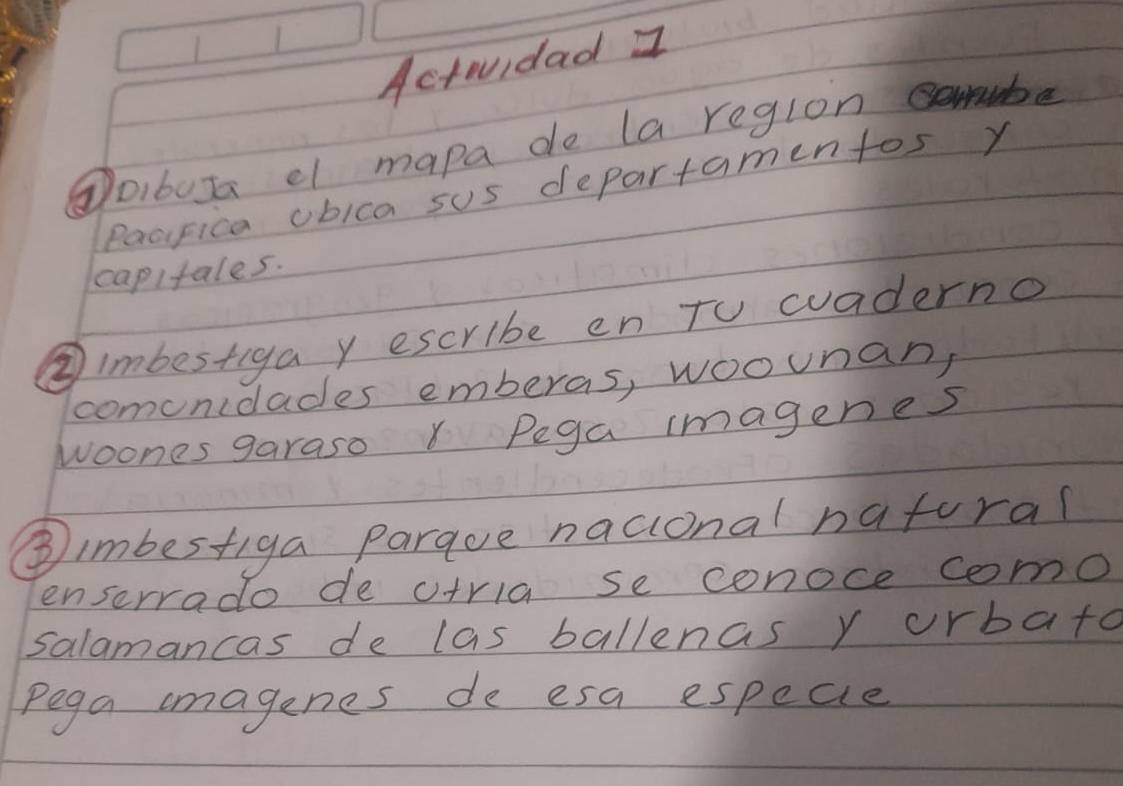 Actividad 1
① Dibuja el mapa de la region
Pacifica ubica sus departamentos y
capitales.
② imbestiga y escribe en TU cuaderno
comunidades emberas, woounan,
woones garaso y Pega imagenes
③ imbestiga Parque nacional natural
enserrado de utria se conoce como
salamancas de las ballenas y urbato
Pega imagenes de esa especie